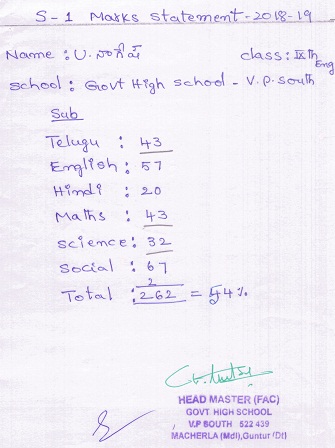 S-1 Marks Statement-2018-19
Name : U. నాగేష్ class: IXth
Eng
school : Govt High school - V.P. South
Sub
Telugu : 43
English : 57
Hindi : 20
Maths : 43
science : 32
social : 67
2
Total : 262 = 54%
HEAD MASTER (FAC)
GOVT HIGH SCHOOL
V.P SOUTH 522 439
MACHERLA (Mdl),Guntur (Dt)